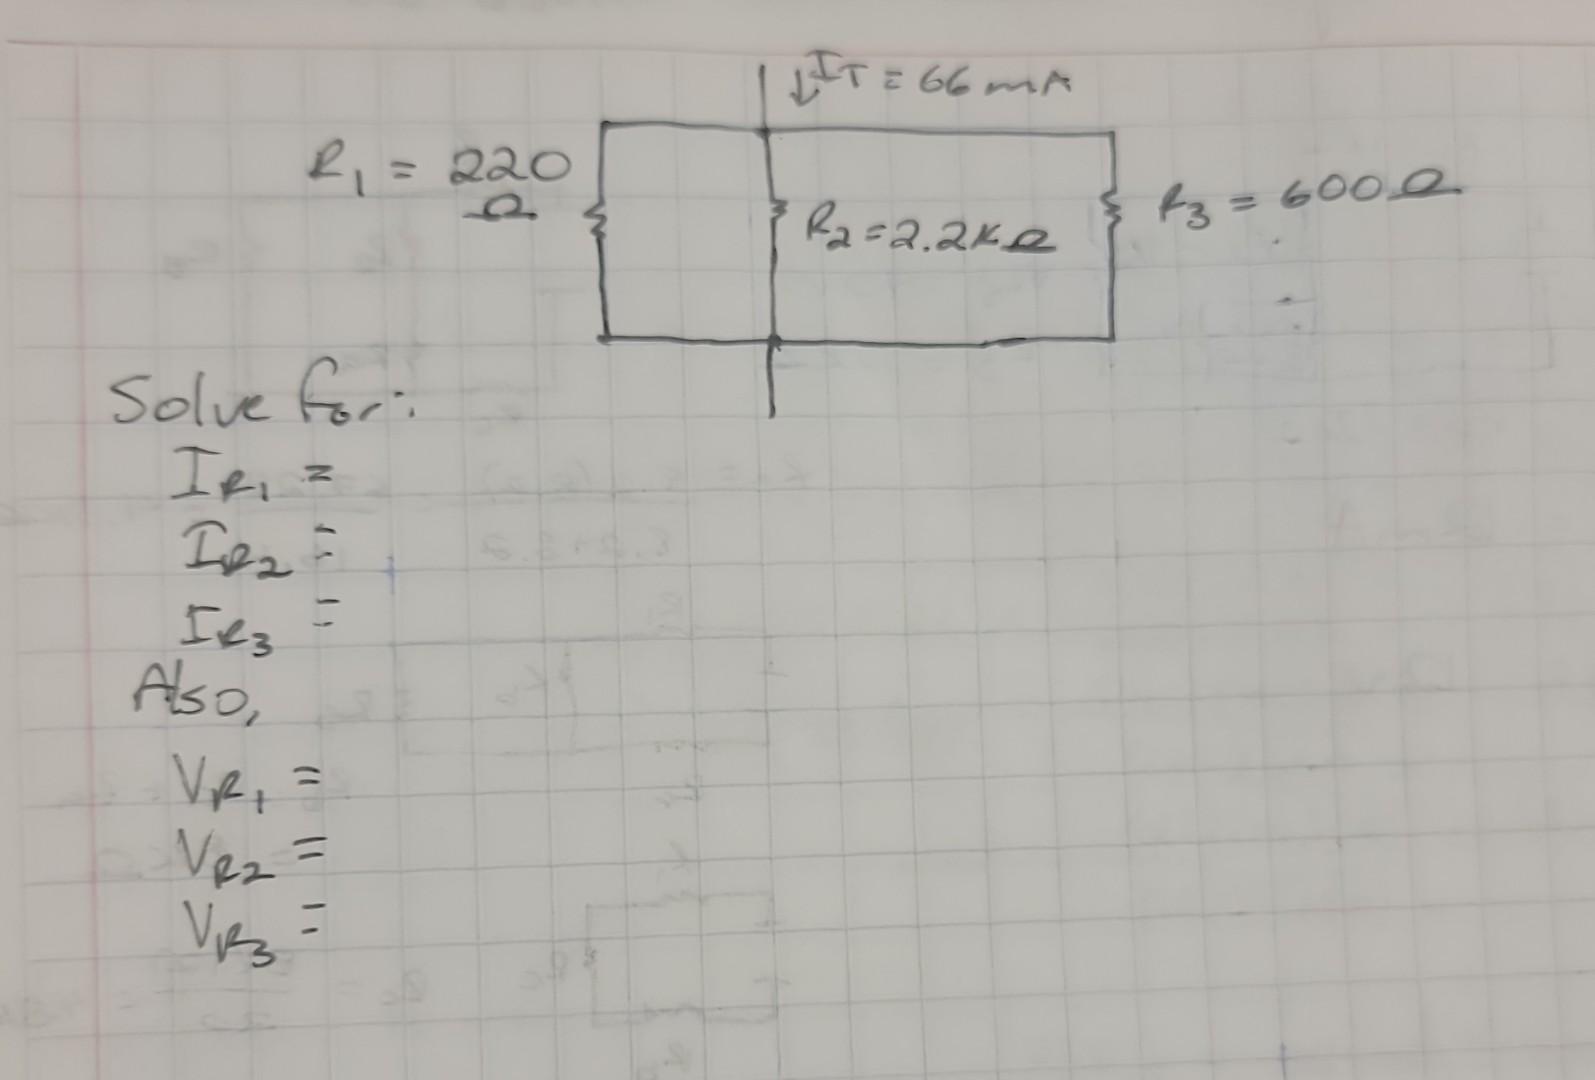 ↓IT = 66 mA
R1 = 220 Ω
R2 = 2.2KΩ
R3 = 600Ω
Solve for:
IR1 =
IR2 =
IR3 =
Also,
VR1 =
VR2 =
VR3 =